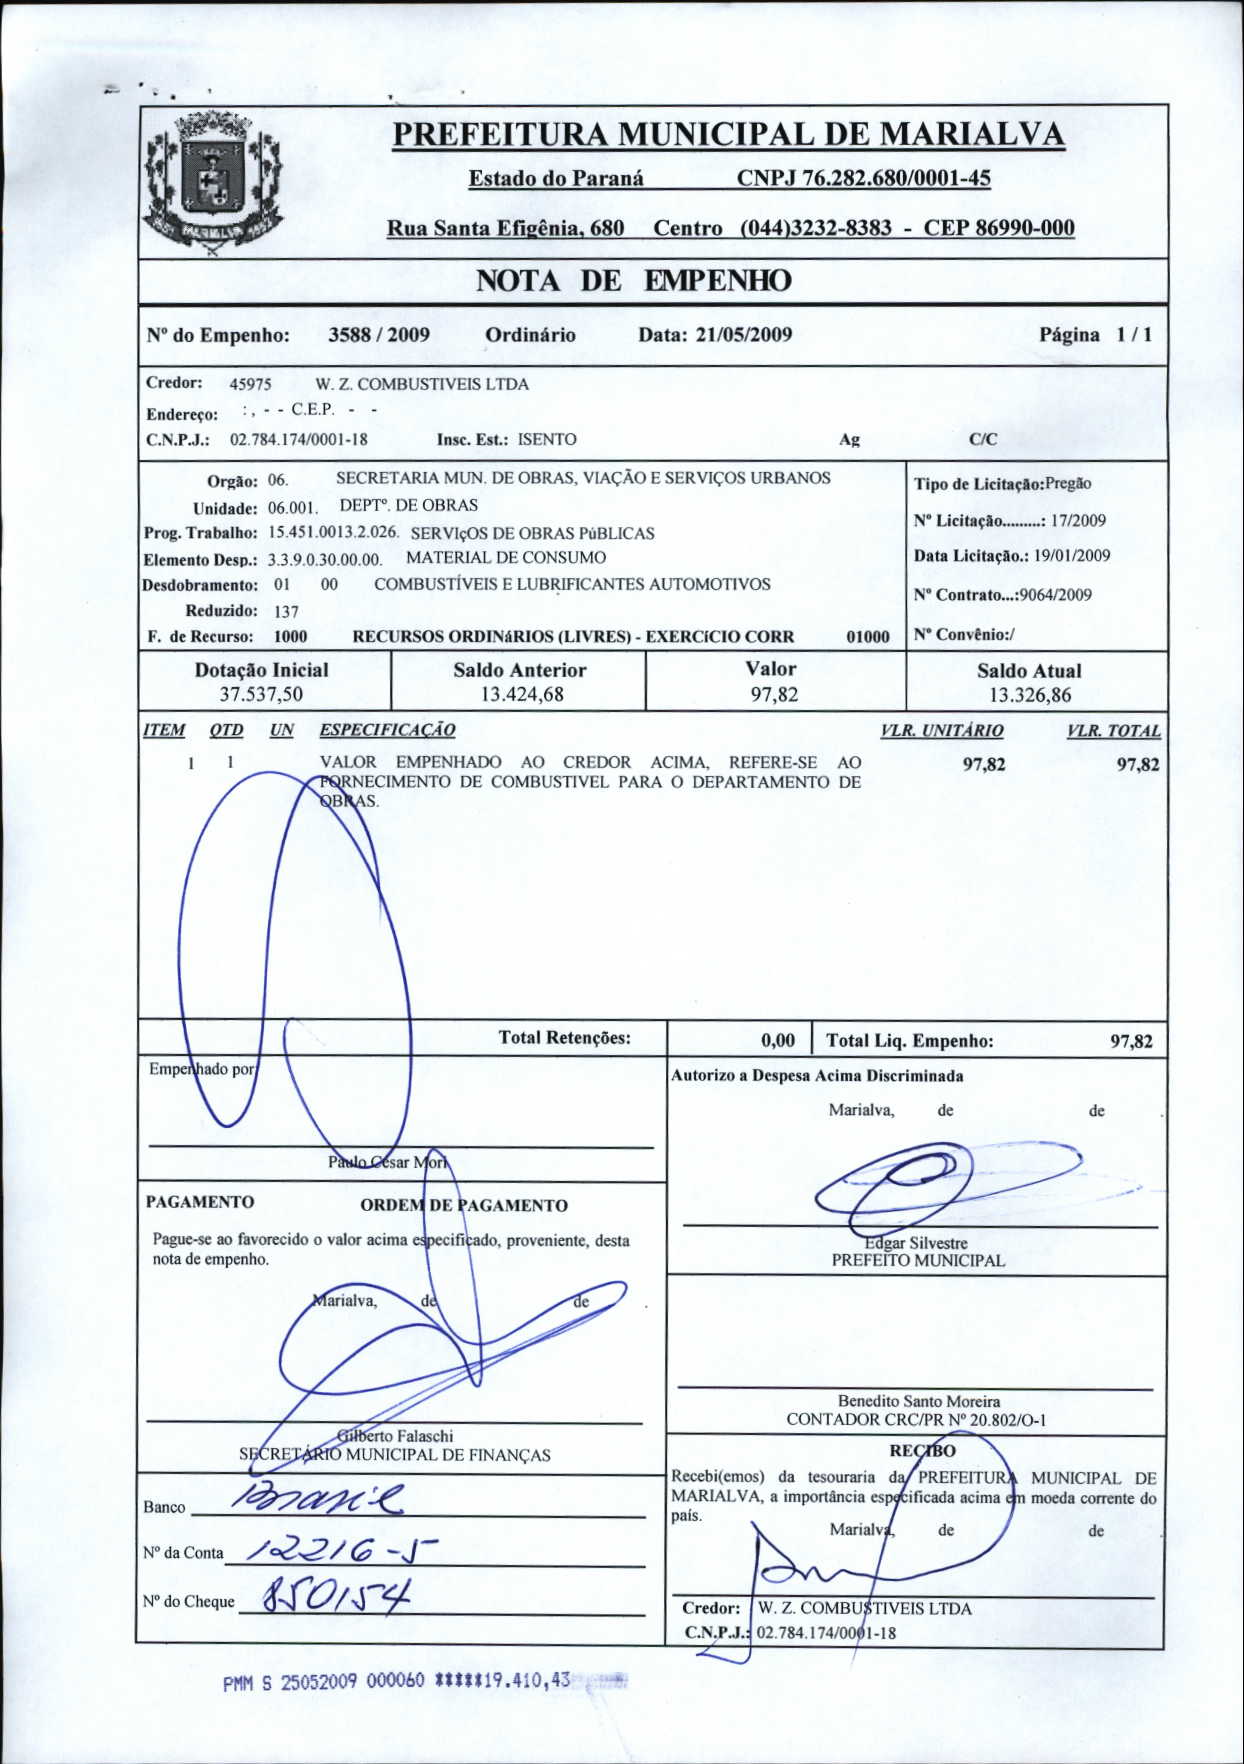 PREFEITURA MUNICIPAL DE MARIALVA
Estado do Paraná CNPJ 76.282.680/0001-45
Rua Santa Efigênia, 680 Centro (044)3232-8383 - CEP 86990-000
MARIALVA
NOTA DE EMPENHO
Nº do Empenho: 3588 / 2009 Ordinário Data: 21/05/2009 Página 1 / 1
Credor: 45975 W. Z. COMBUSTIVEIS LTDA
Endereço: : , - - C.E.P. - -
C.N.P.J.: 02.784.174/0001-18 Insc. Est.: ISENTO Ag C/C
Orgão: 06. SECRETARIA MUN. DE OBRAS, VIAÇÃO E SERVIÇOS URBANOS
Unidade: 06.001. DEPTº. DE OBRAS
Prog. Trabalho: 15.451.0013.2.026. SERVIçOS DE OBRAS PúBLICAS
Elemento Desp.: 3.3.9.0.30.00.00. MATERIAL DE CONSUMO
Desdobramento: 01 00 COMBUSTÍVEIS E LUBRIFICANTES AUTOMOTIVOS
Reduzido: 137
F. de Recurso: 1000 RECURSOS ORDINáRIOS (LIVRES) - EXERCíCIO CORR 01000
Tipo de Licitação:Pregão
Nº Licitação.........: 17/2009
Data Licitação.: 19/01/2009
Nº Contrato...:9064/2009
Nº Convênio:/
Dotação Inicial Saldo Anterior Valor Saldo Atual
37.537,50 13.424,68 97,82 13.326,86
ITEM QTD UN ESPECIFICAÇÃO VLR. UNITÁRIO VLR. TOTAL
1 1 VALOR EMPENHADO AO CREDOR ACIMA, REFERE-SE AO 97,82 97,82
FORNECIMENTO DE COMBUSTIVEL PARA O DEPARTAMENTO DE
OBRAS.
Total Retenções: 0,00 Total Liq. Empenho: 97,82
Empenhado por
Paulo Cesar Mori
Autorizo a Despesa Acima Discriminada
Marialva, de de .
Edgar Silvestre
PREFEITO MUNICIPAL
PAGAMENTO ORDEM DE PAGAMENTO
Pague-se ao favorecido o valor acima especificado, proveniente, desta
nota de empenho.
Marialva, de de .
Gilberto Falaschi
SECRETÁRIO MUNICIPAL DE FINANÇAS
Benedito Santo Moreira
CONTADOR CRC/PR Nº 20.802/O-1
Banco Brasil
Nº da Conta 12216-5
Nº do Cheque 850154
RECIBO
Recebi(emos) da tesouraria da PREFEITURA MUNICIPAL DE
MARIALVA, a importância especificada acima em moeda corrente do
país.
Marialva, de de
Credor: W. Z. COMBUSTIVEIS LTDA
C.N.P.J.: 02.784.174/0001-18
PMM S 25052009 000060 *****19.410,43